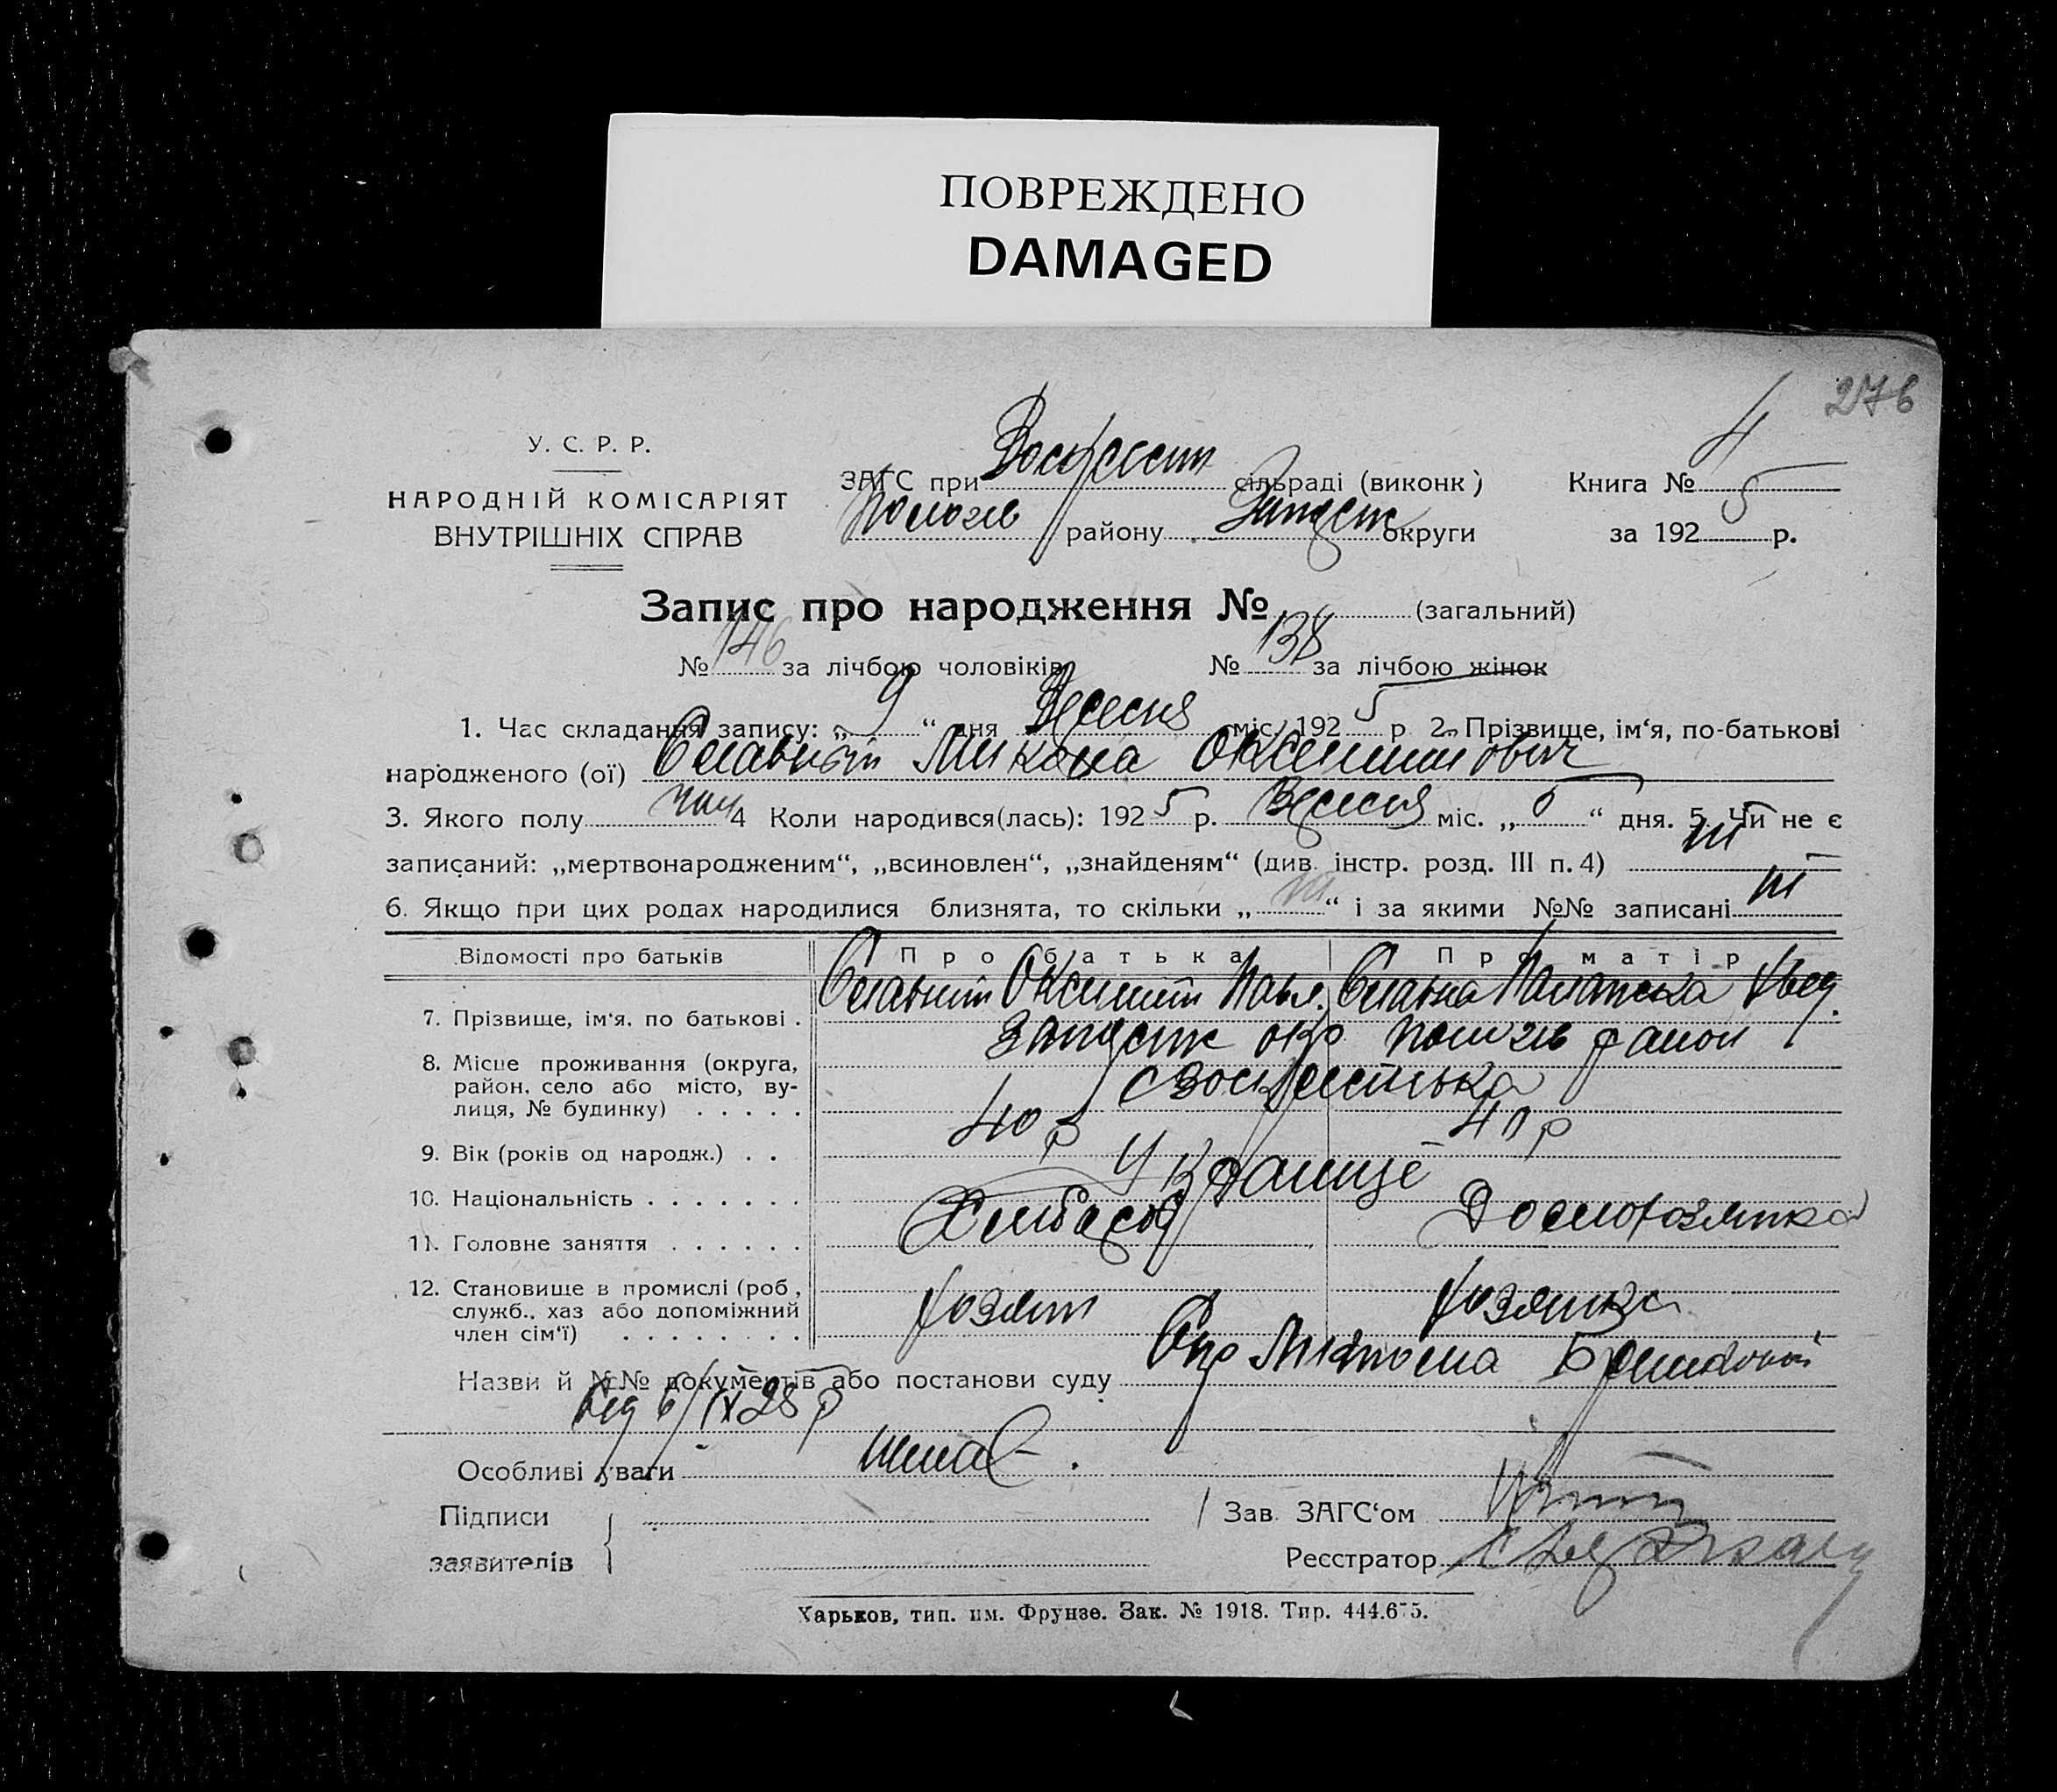 ПОВРЕЖДЕНО
DAMAGED
276
У. С. Р. Р.
НАРОДНІЙ КОМІСАРІЯТ
ВНУТРІШНІХ СПРАВ
ЗАГС при Воскресен сільраді (виконк) Книга № 4
Пологів району Запорiж округи за 1925 р.
Запис про народження № (загальний)
№ 146 за лічбою чоловіків № 138 за лічбою жінок
1. Час складання запису: „9“ дня Вересня міс. 1925 р 2. Прізвище, ім'я, по-батькові
народженого (ої) Славний Микола Оксентович
3. Якого полу чол 4 Коли народився(лась): 1925 р. Вересня міс. „6“ дня. 5. Чи не є
записаний: „мертвонародженим“, „всиновлен“, „знайденям“ (див. інстр. розд. III п. 4) ні
6. Якщо при цих родах народилися близнята, то скільки „ні“ і за якими №№ записані ні
Відомості про батьків Про батька Про матір
7. Прізвище, ім'я, по батькові . Славний Оксентій Павл. Славна Палажка Хвед.
8. Місце проживання (округа, район, село або місто, вулиця, № будинку) . . . . . Запоріж окр Пологів район
с Воскресенська
9. Вік (років од народж.) . . 40 р 40 р
10. Національність . . . . . . . Українці
11. Головне заняття . . . . . . Хлібороб Домохозяйка
12. Становище в промислі (роб, служб., хаз або допоміжний член сім'ї) . . . . . . . . хозяїн хозяйка
Назви й №№ документів або постанови суду Спр
від 6/IX 25 р
Особливі уваги немає.
Підписи
заявителів
Зав ЗАГС'ом
Реєстратор
Харьков, тип. им. Фрунзе. Зак. № 1918. Тир. 444.675.